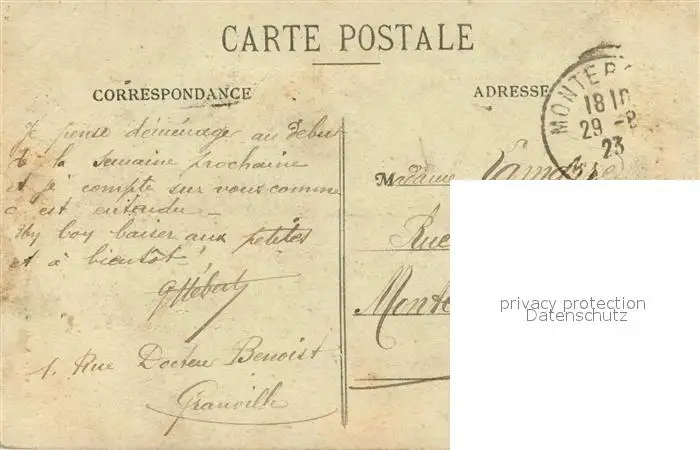 CARTE POSTALE
CORRESPONDANCE
ADRESSE
MONTER
18 10
29 - 8
23
Je pense déménager au debut
de la semaine prochaine
et je compte sur vous comme
c est entendu -
boy baiser aux petites
et à bientôt!
GHébert
1. Rue Docteur Benoist
Granville
Madame
Rue
Monte
privacy protection
Datenschutz